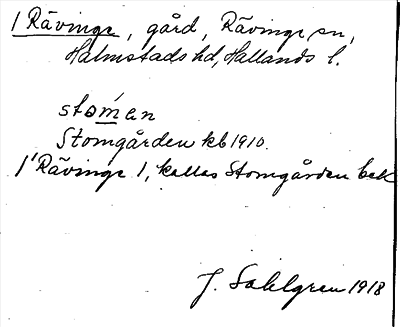 1 Rävinge, gård, Rävinge sn,
Halmstads hd, Hallands l.
stómen
Stomgården kb 1910.
1' Rävinge 1, kallas Stomgården bek
J. Sahlgren 1918